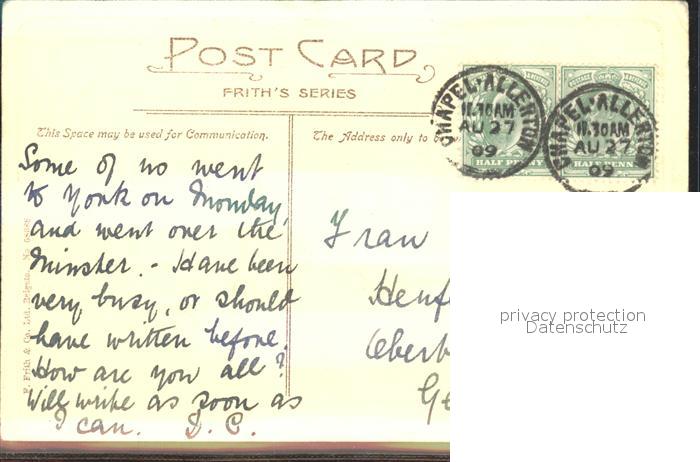 POST CARD
FRITH'S SERIES
This Space may be used for Communication.
The Address only to
CHAPEL·ALLERTON
11.30AM
AU 27
09
HALF PENNY
CHAPEL·ALLERTON
11.30AM
AU 27
09
HALF PENN
Some of us went
to York on Monday,
and went over the
Minster. - Have been
very busy, or should
have written before.
How are you all?
Will write as soon as
I can. D. C.
Frau
F. Frith & Co. Ltd. Reigate. No.
privacy protection
Datenschutz